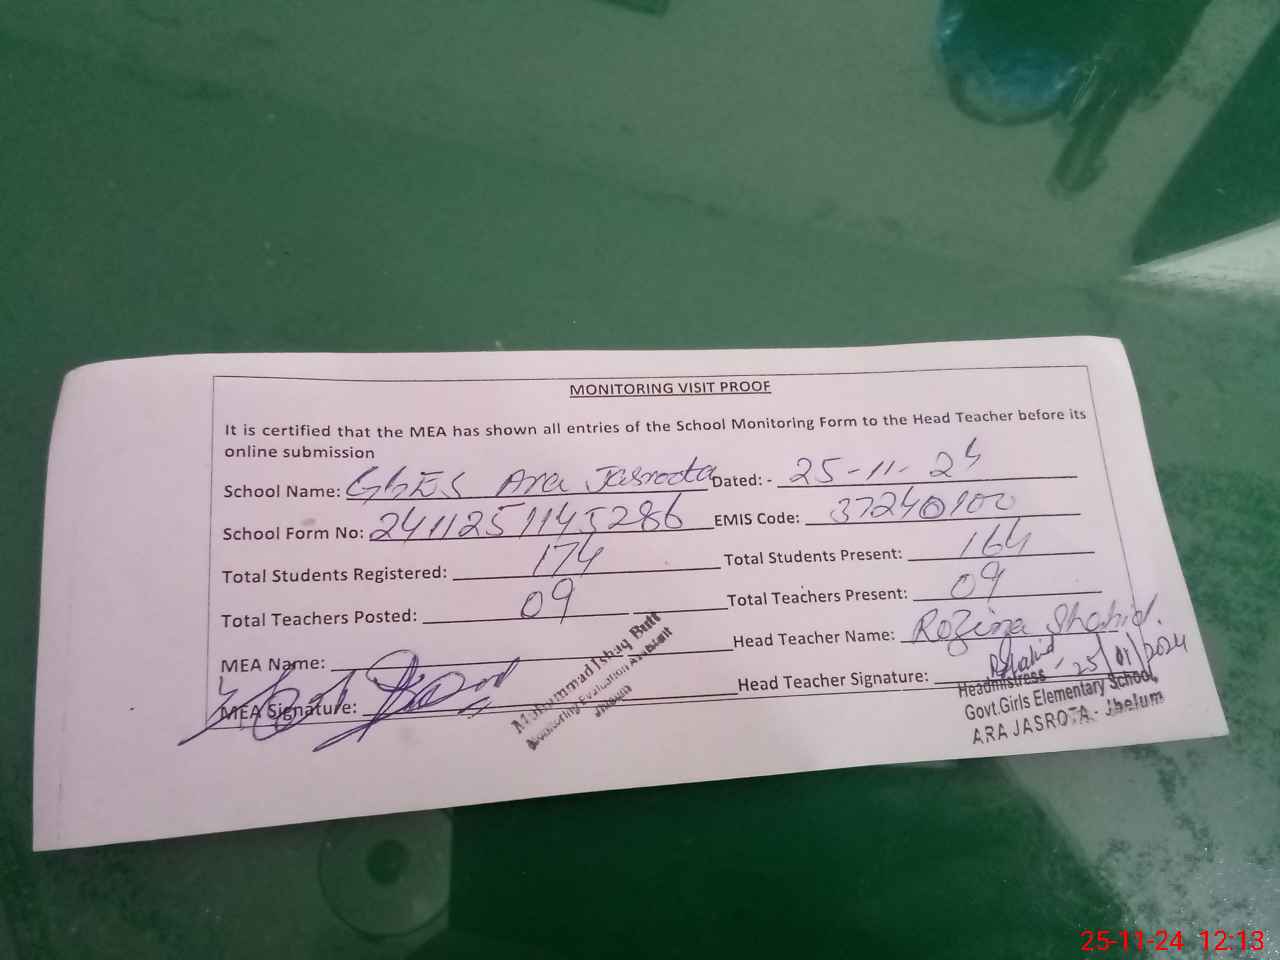 MONITORING VISIT PROOF
It is certified that the MEA has shown all entries of the School Monitoring Form to the Head Teacher before its
online submission
School Name: GGES Ara Jasroota Dated: - 25-11-24
School Form No: 2411251145286 EMIS Code: 37240100
Total Students Registered: 174 Total Students Present: 164
Total Teachers Posted: 09 Total Teachers Present: 09
MEA Name: Head Teacher Name: Rozina Shahid.
MEA Signature: Head Teacher Signature: RShahid 25/11/2024
Muhammad Ishaq Butt
Monitoring Evaluation Assistant
Jhelum
Headmistress
Govt.Girls Elementary School,
ARA JASROTA - Jhelum
25-11-24 12:13